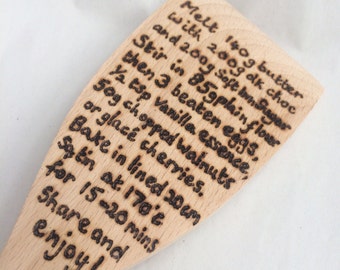 Melt 140g butter
with 200g dk choc
and 200g soft brn sugar
Stir in 85g plain flour
then 3 beaten eggs,
½ tsp vanilla essence
50g chopped walnuts
or glacé cherries.
Bake in lined 20cm
sq tn at 170°c
for 15-20 mins
share and
enjoy!